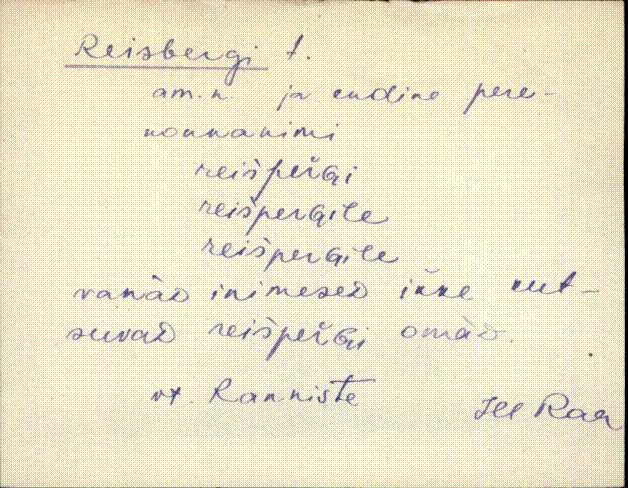 Reisbergi t.
am. n. ja endine pere-
konnanimi
reišpeřGi
reišperGile
reišperGile
vanàD inimeseD ikke kut-
suvaD reišpeřGi omàD.
vt. Ranniste